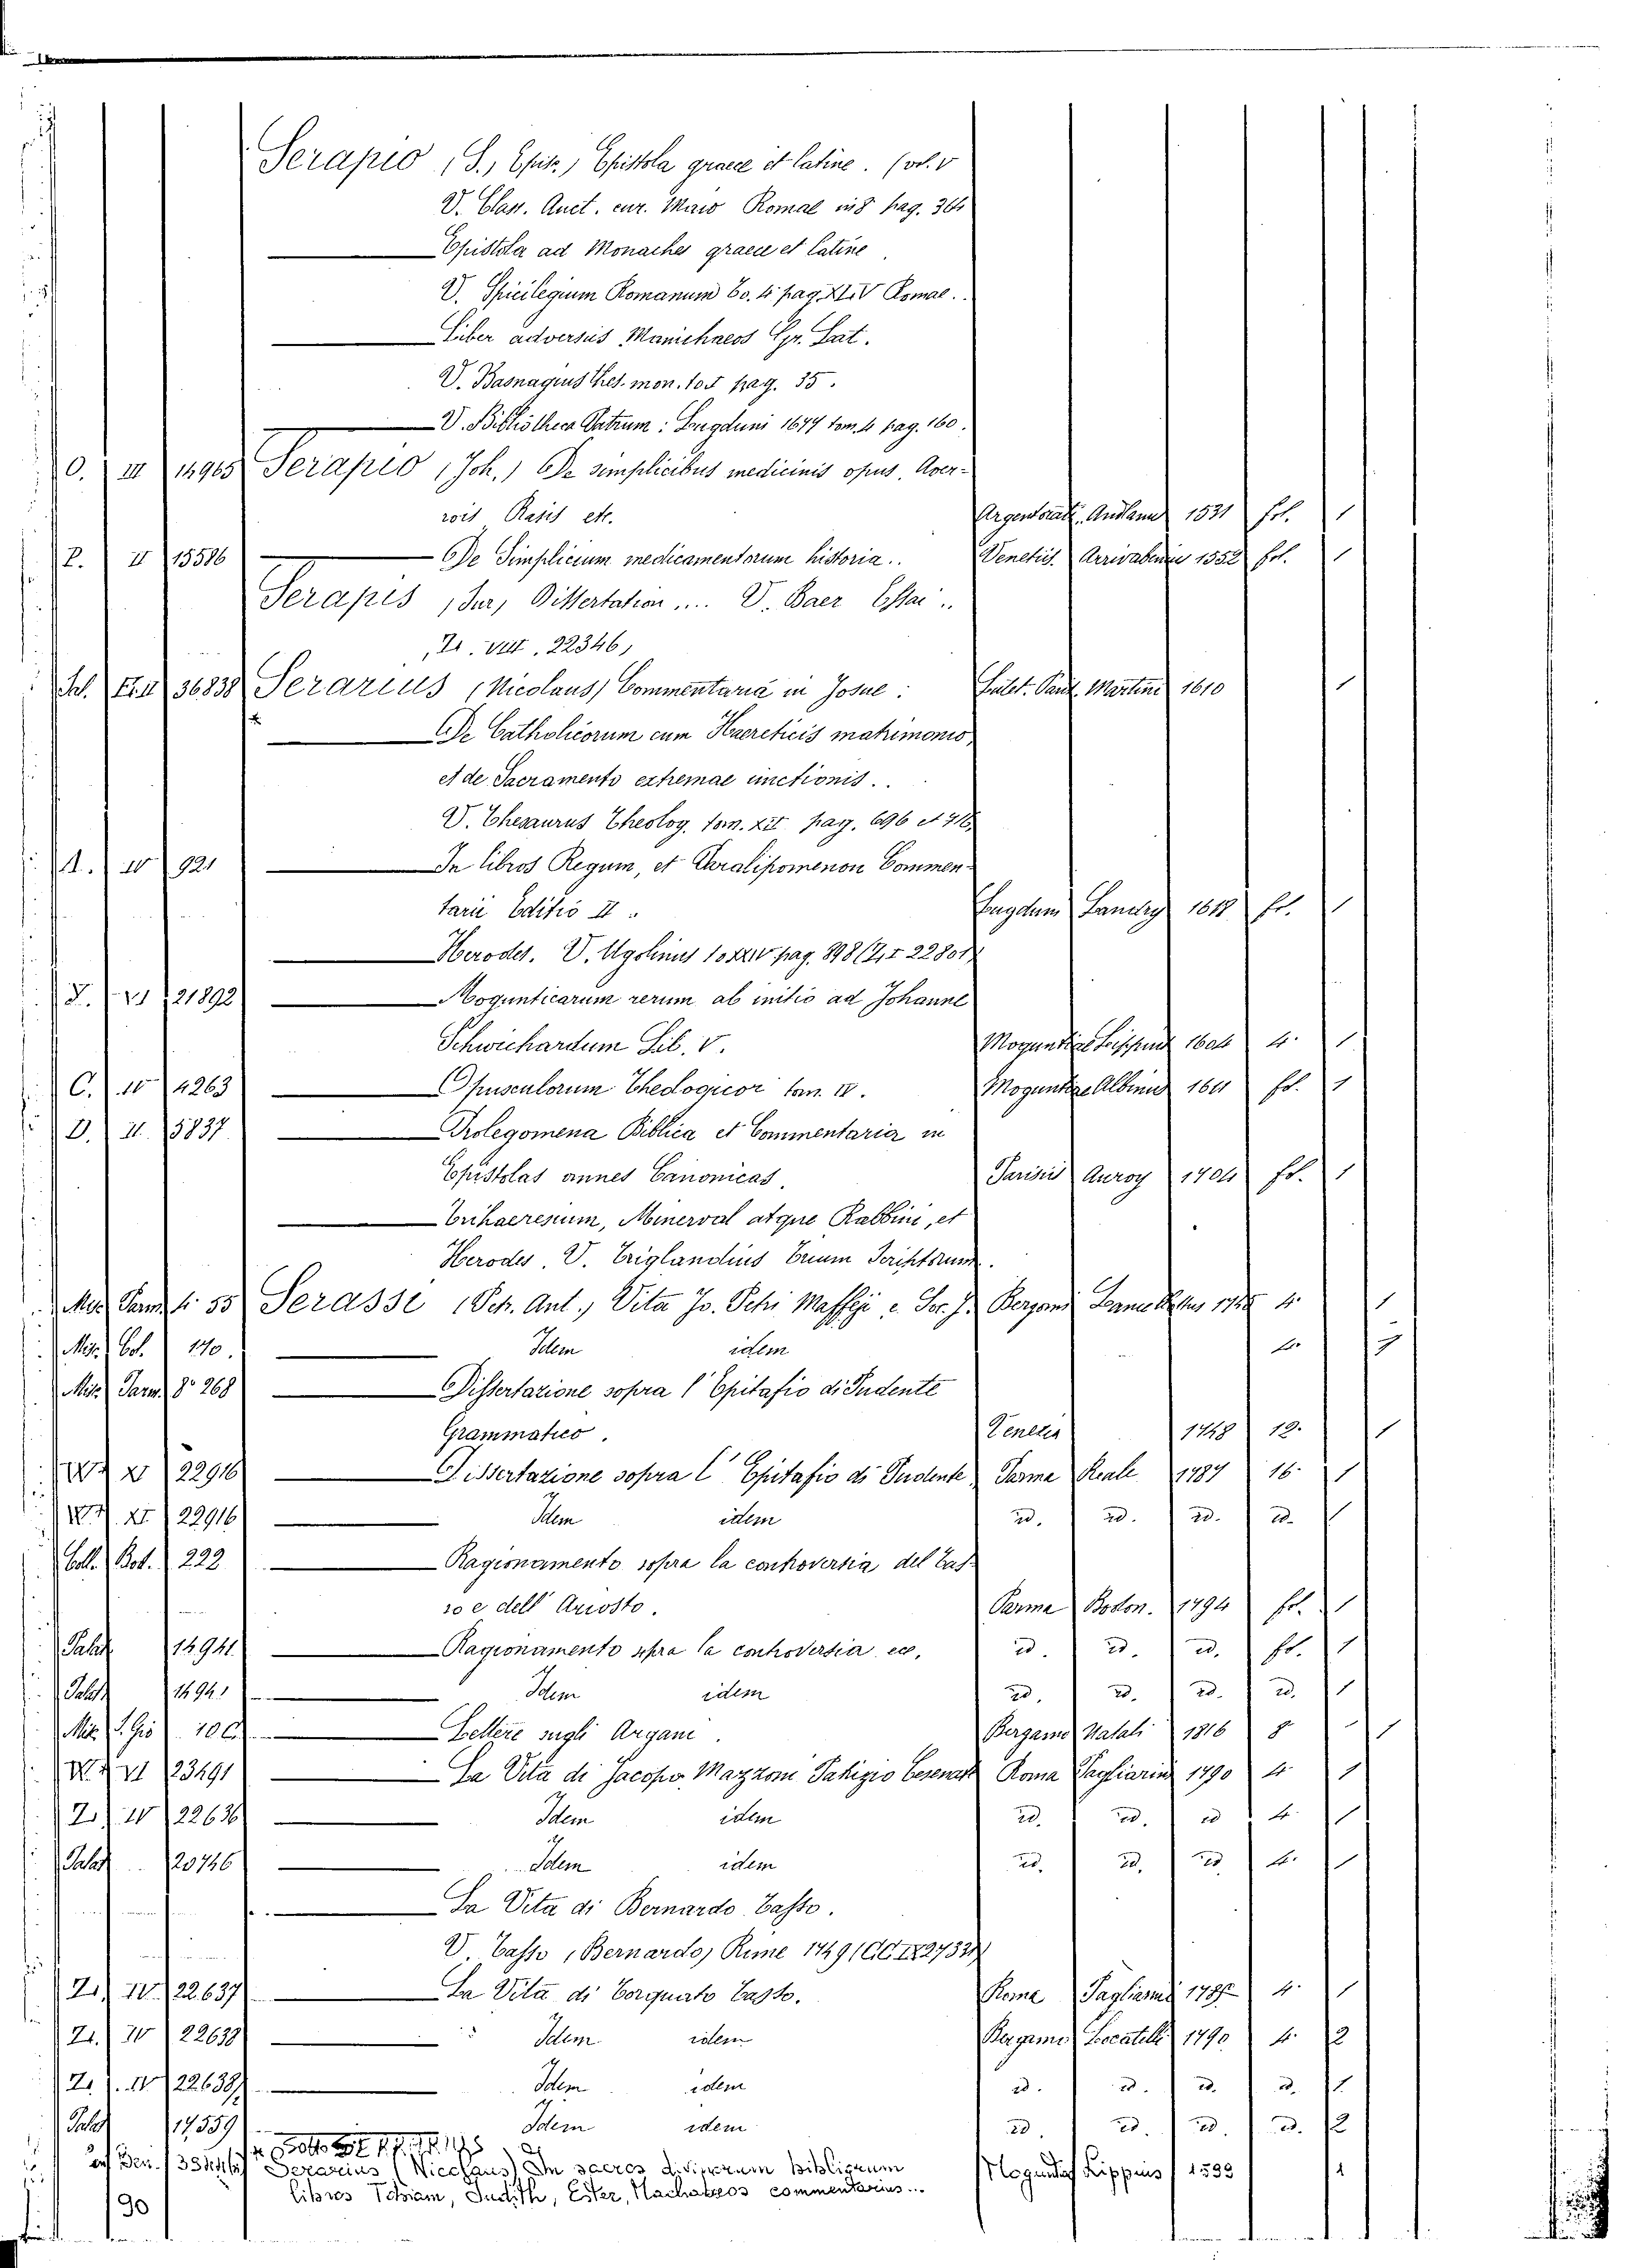 Serapio (S., Epis.) Epistola graece et latine. (vol. V
V. Class. Auct. cur. Maio Romae in 8 pag. 364
Epistola ad Monachos graece et latine
V. Spicilegium Romanum to. 4 pag. XLIV Romae.
Liber adversus Manichaeos Gr. Lat.
V. Basnagius thes. mon. to I pag. 35.
V. Bibliotheca Patrum: Lugduni 1677 tom. 4 pag. 160.
O. III 14965 Serapio (Joh.) De simplicibus medicinis opus. Aver-
rois Rasis etc. Argentorati. 1531 fol. 1
P. II 15586 De Simplicium medicamentorum historia.. Venetiis. Arrivabenius 1552 fol. 1
Serapis (sur) Dissertation.... V. Baer Essai..
(Z1. VIII. 22346)
36838 Serarius (Nicolaus) Commentaria in Josue: Lutet. Paris. Martini 1610 1
De Catholicorum cum Haereticis matrimonio,
et de Sacramento extremae unctionis..
V. Thesaurus Theolog. tom. XII pag. 696 et 716
A. IV 921 In libros Regum, et Paralipomenon Commen-
tarii Editio II. Lugduni Landry 1618 fol. 1
Herodes. V. Ugolinus to XXIV pag. 898 (Z, I 22801)
21892 Mogunticarum rerum ab initio ad Johanne
Schwichardum Lib. V. Moguntiae Lippius 1604 4. 1
C. IV 4263 Opusculorum Theologicor tom. IV. Moguntiae Albinus 1611 fol. 1
D. II. 5837 Prolegomena Biblica et Commentaria in
Epistolas omnes Canonicas. Parisiis Auroy 1704 fol. 1
Trihaeresium, Minerval atque Rabbini, et
Herodes. V. Triglandius Trium Scriptorum.
Misc. Parm. 4. 55 Serassi (Petr. Ant.) Vita Jo. Petri Maffeji e Soc. J. Bergomi 4. 1
Misc. Col. 170. Idem idem 4.
Misc. Parm. 8º 268 Dissertazione sopra l' Epitafio di Pudente
Grammatico. Venezia 1748 12. 1
22916 Dissertazione sopra l' Epitafio di Pudente Parma Reale 1787 16. 1
22916 Idem idem id. id. id. id. 1
Coll. Bod. 222 Ragionamento sopra la controversia del Tas-
so e dell' Ariosto. Parma Bodon. 1794 fol. 1
Palat 14941 Ragionamento sopra la controversia ec. id. id. id. fol. 1
Palat 14941 Idem idem id. id. id. id. 1
Misc. S. Gio 100 Lettere sugli Argani. Bergamo Natali 1816 8 1
23491 La Vita di Jacopo Mazzoni Patrizio Cesenate Roma Pagliarini 1790 4 1
Z1. IV 22636 Idem idem id. id. id 4. 1
Palat 20746 Idem idem id. id. id 4. 1
La Vita di Bernardo Tasso.
V. Tasso (Bernardo) Rime 1749
Z1. IV. 22637 La Vita di Torquato Tasso. Roma Pagliarini 1785 4. 1
Z1. IV 22638 Idem idem Bergamo Locatelli 1790 4. 2
Z1. IV 22638 Idem idem id. id. id. id. 1
Palat 17559 Idem idem id. id. id. id. 2
Serarius (Nicolaus) In sacros divinorum bibliorum Lippius 1599 1
libros Tobiam, Judith, Ester, Machabeos commentarius...
90